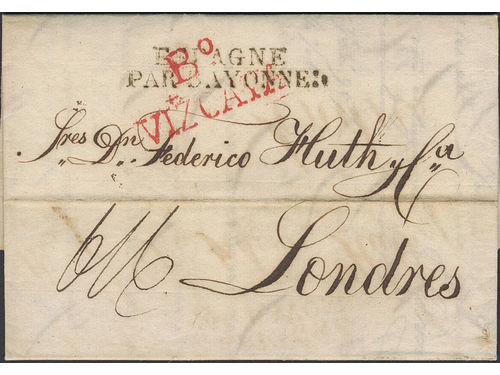 ESPAGNE
PAR BAYONNE
Bº
VIZCAYA
Sres Dn. Federico Huth y Cª
Londres